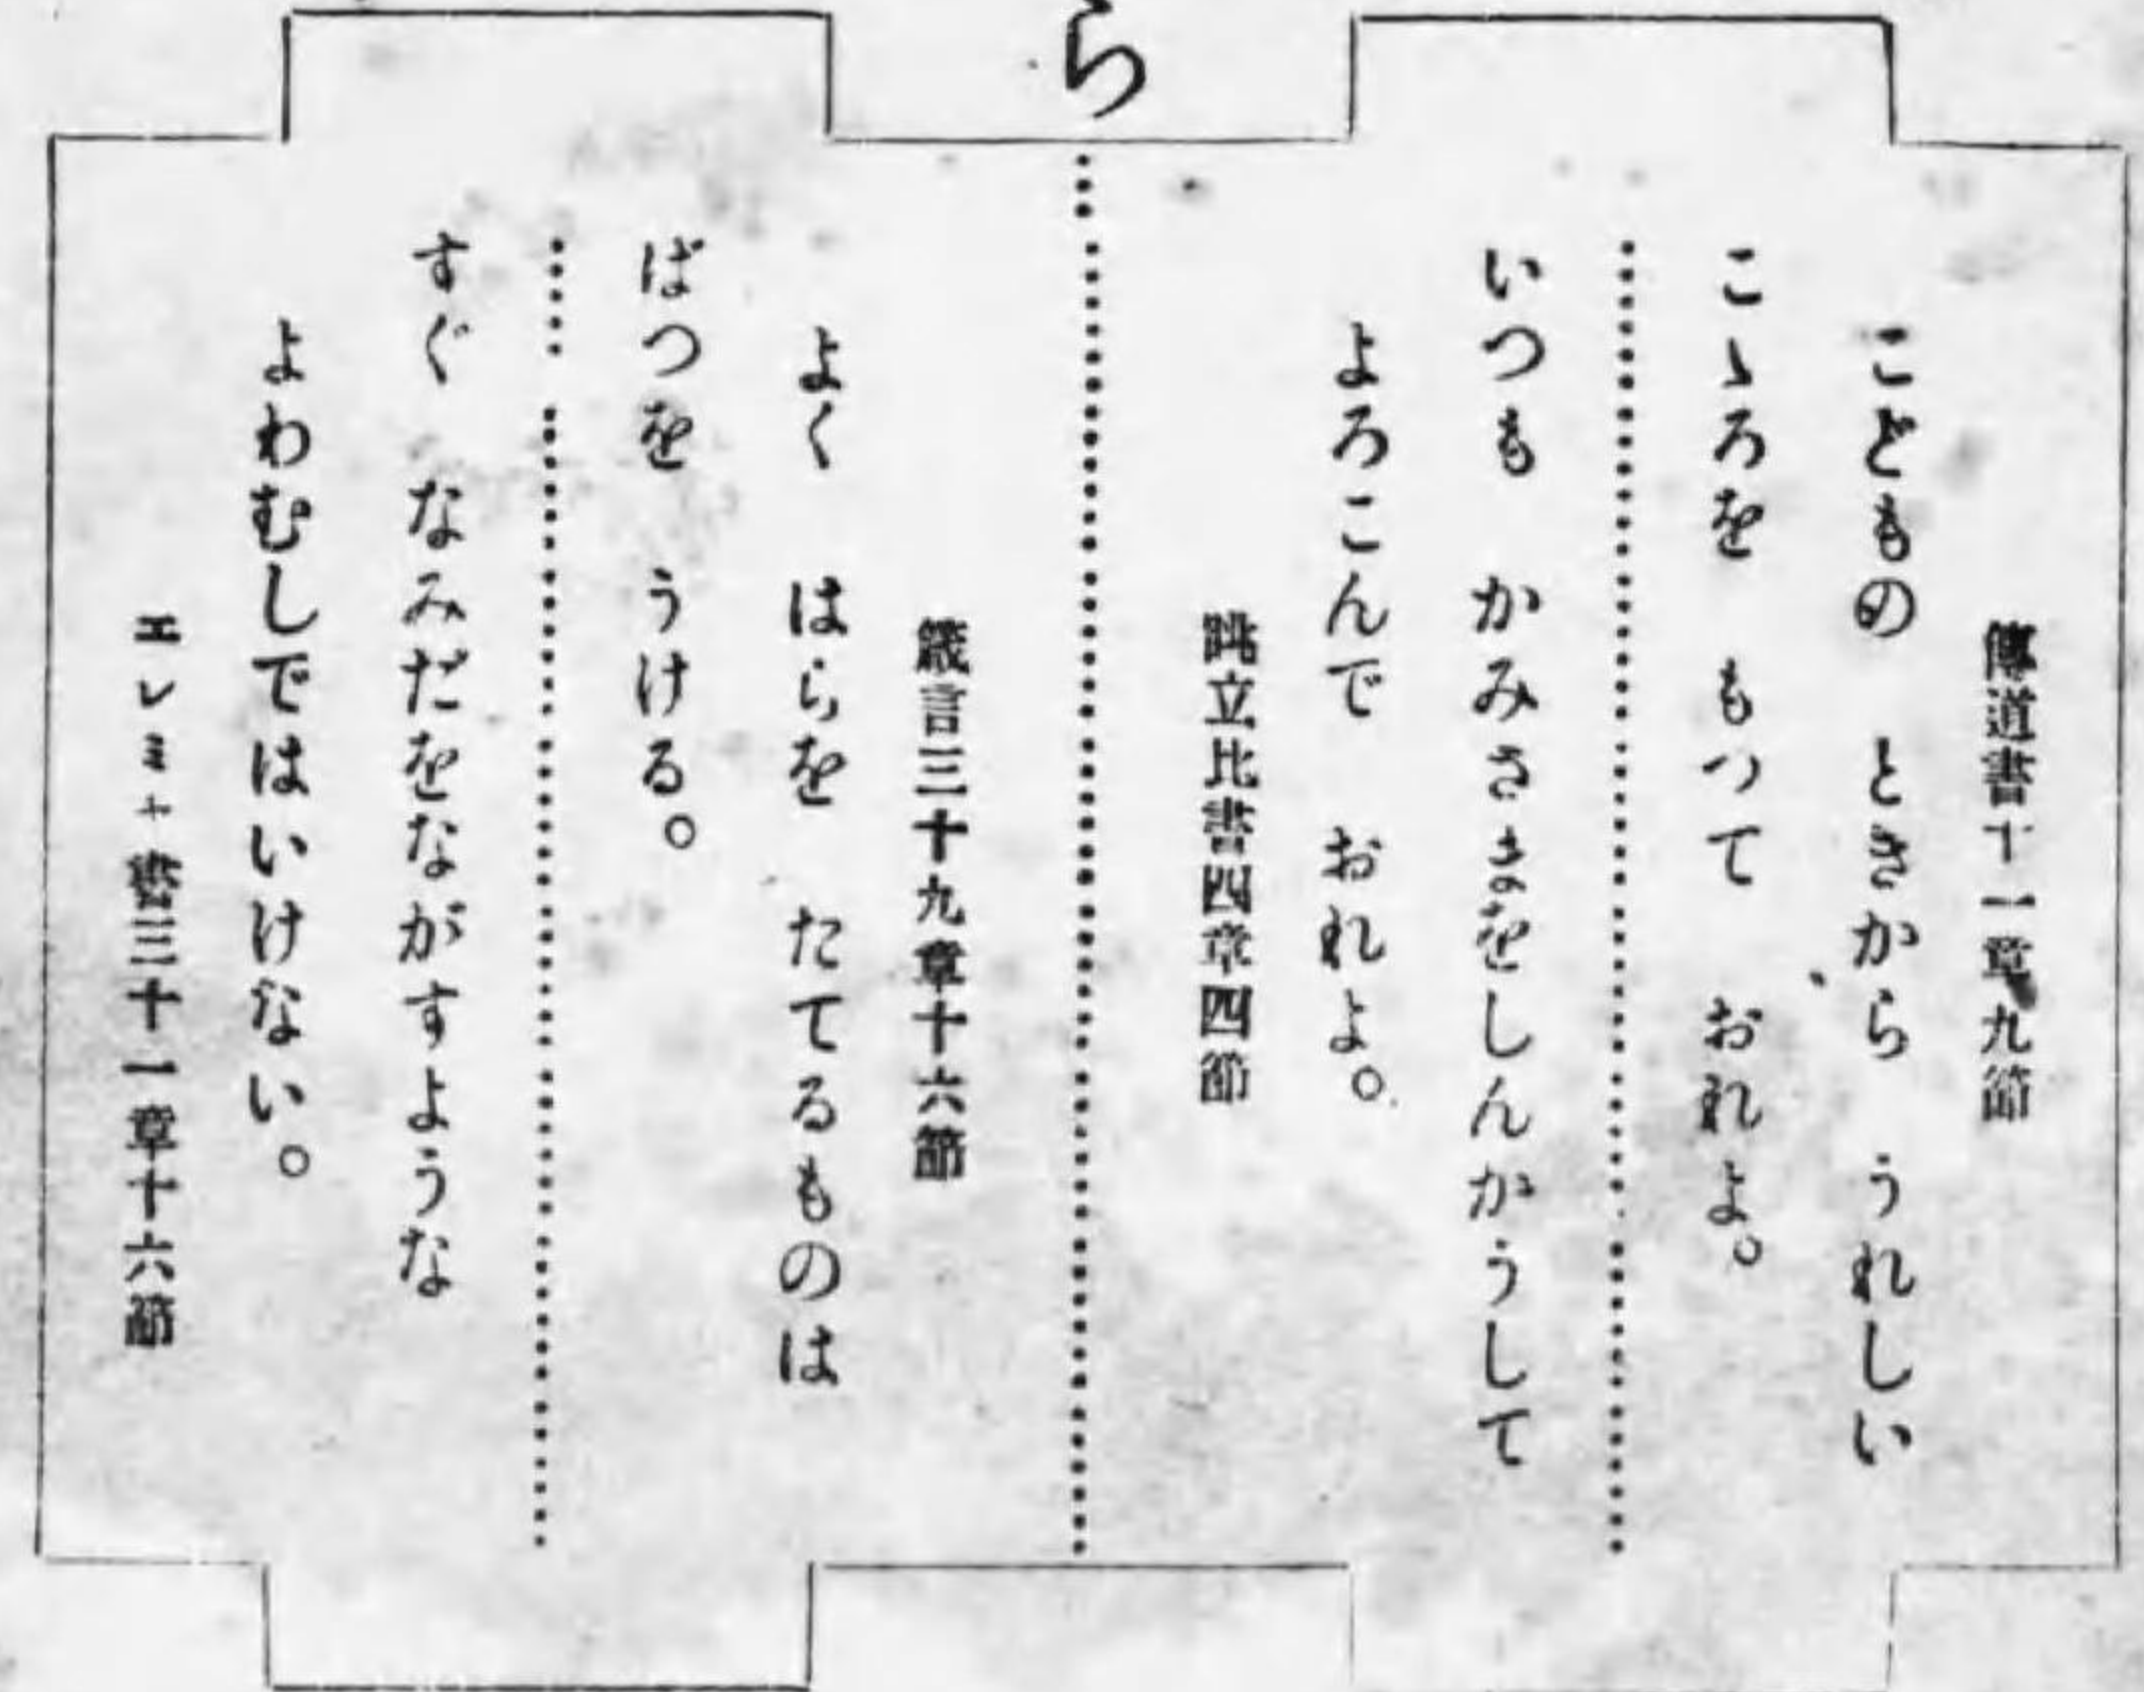 ら
傳道書十一章九節
こどもの ときから うれしい
こゝろを もつて おれよ。
いつも かみさまをしんかうして
よろこんで おれよ。
腓立比書四章四節
箴言三十九章十六節
よく はらを たてるものは
ばつを うける。
すぐ なみだをながすような
よわむしではいけない。
エレミヤ書三十一章十六節